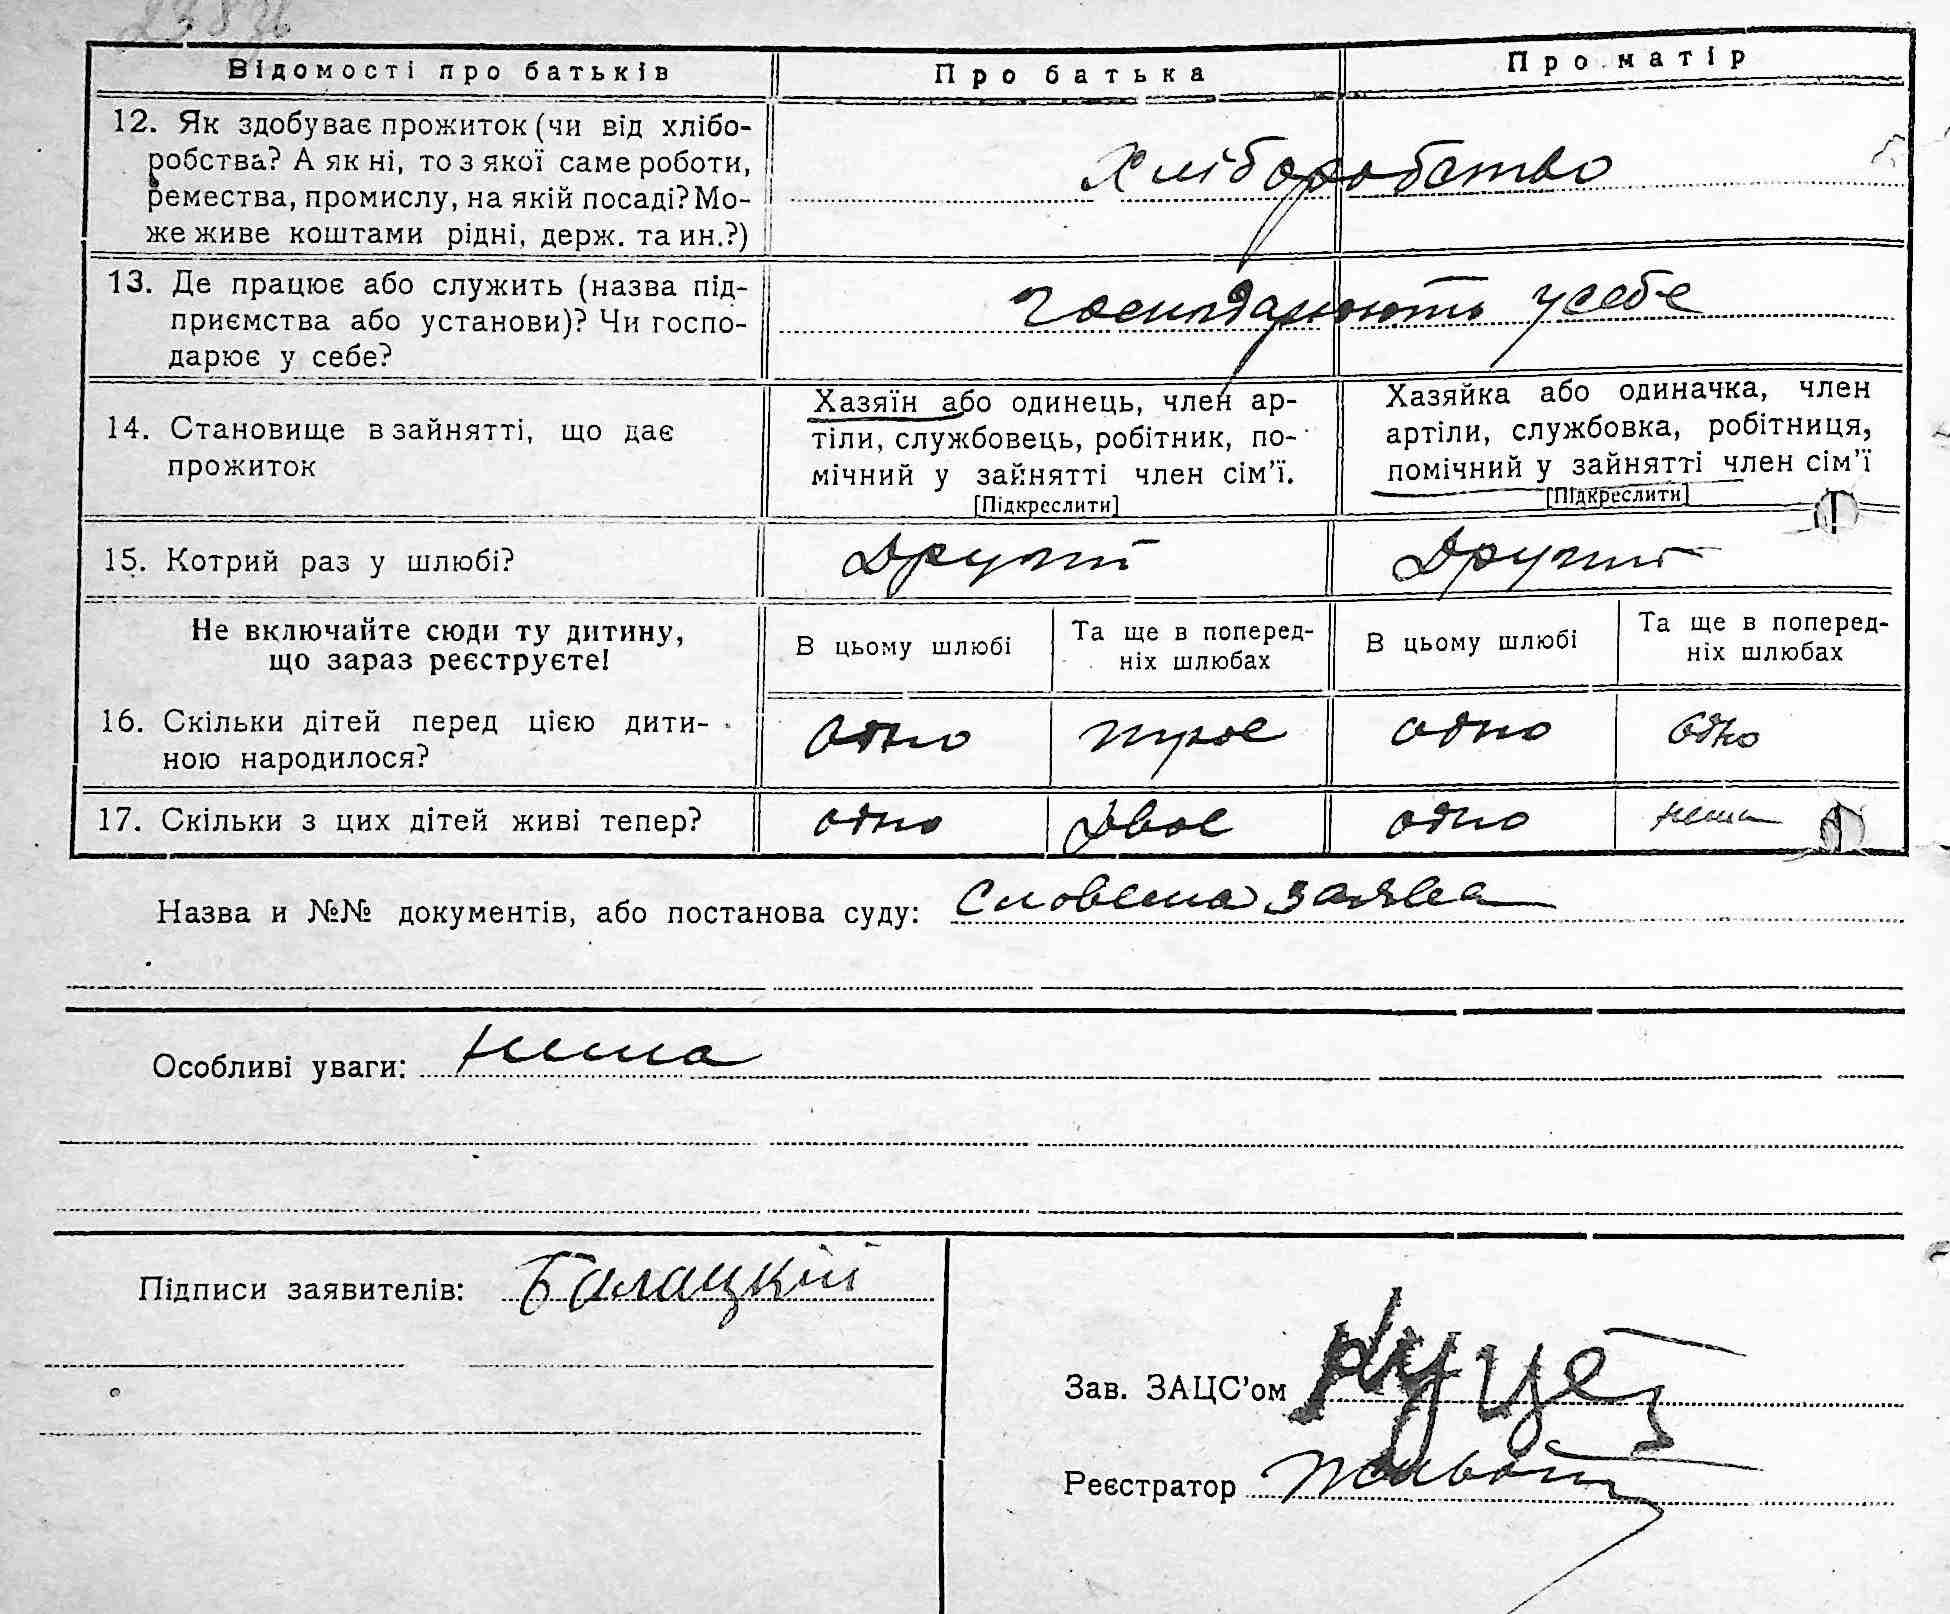 Відомості про батьків Про батька Про матір
12. Як здобуває прожиток (чи від хлібо-
робства? А як ні, то з якої саме роботи,
ремества, промислу, на якій посаді? Мо-
же живе коштами рідні, держ. та ин.?)
Хліборобство
13. Де працює або служить (назва під-
приємства або установи)? Чи госпо-
дарює у себе?
Господарюють у себе
14. Становище в зайнятті, що дає
прожиток
Хазяїн або одинець, член ар-
тіли, службовець, робітник, по-
мічний у зайнятті член сім'ї.
[Підкреслити]
Хазяйка або одиначка, член
артіли, службовка, робітниця,
помічний у зайнятті член сім'ї
[Підкреслити]
15. Котрий раз у шлюбі? Другий Другий
Не включайте сюди ту дитину,
що зараз реєструєте!
В цьому шлюбі
Та ще в поперед-
ніх шлюбах
В цьому шлюбі
Та ще в поперед-
ніх шлюбах
16. Скільки дітей перед цією дити-
ною народилося?
одно троє одно одно
17. Скільки з цих дітей живі тепер? одно двоє одно нема
Назва и №№ документів, або постанова суду: Словесна заява
Особливі уваги: нема
Підписи заявителів: Балацкій
Зав. ЗАЦС'ом
Реєстратор